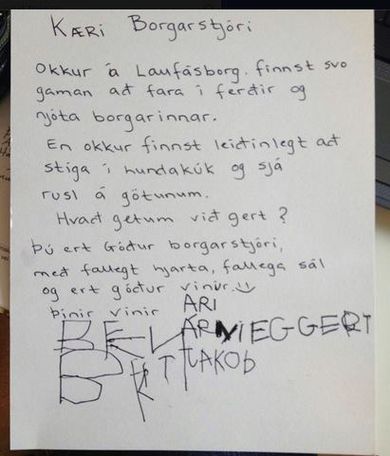 Kæri Borgarstjóri
Okkur á Laufásborg. finnst svo
gaman að fara í ferðir og
njóta borgarinnar.
En okkur finnst leiðinlegt að
stíga í hundakúk og sjá
rusl á götunum.
Hvað getum við gert?
Þú ert Góður borgarstjóri,
með fallegt hjarta, fallega sál
og ert góður vinur.
Þínir vinir
ARI
ÁRNI EGGERT
JAKOb